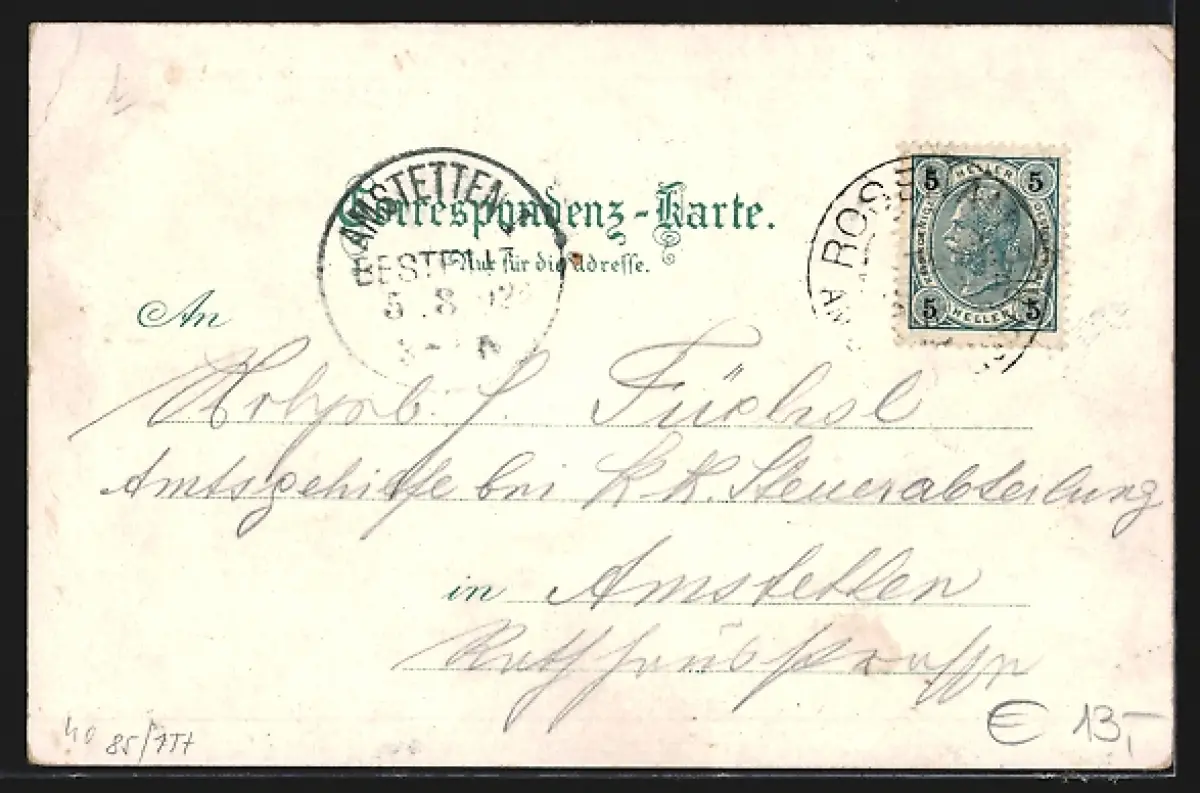 Correspondenz-Karte.
Nur für die Adresse.
AMSTETTEN
BESTELLT
5 8 02
ROSS
5 HELLER 5
5 HELLER 5
An
Füchsl
Amtsgehilfe bei K. K. Steuerabteilung
in Amstetten
Rathhausstrasse
€ 13,-